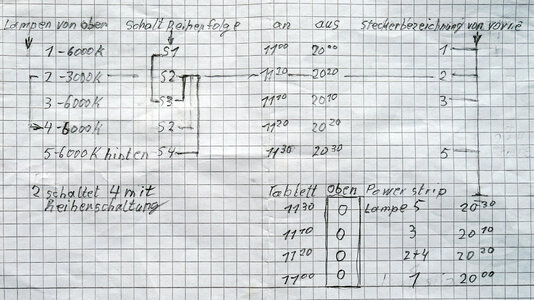 Lampen von oben Schalt Reihenfolge an aus Steckerbezeichnung von vorne
1-6000K S1 11⁰⁰ 20⁰⁰ 1
2-3000K S2 11²⁰ 20²⁰ 2
3-6000K S3 11¹⁰ 20¹⁰ 3
4-6000K S2 11²⁰ 20²⁰
5-6000K hinten S4 11³⁰ 20³⁰ 5
2 schaltet 4 mit
Reihenschaltung
Tablett oben Power strip
11³⁰ O Lampe 5 20³⁰
11¹⁰ O 3 20¹⁰
11²⁰ O 2+4 20²⁰
11⁰⁰ O 1 20⁰⁰